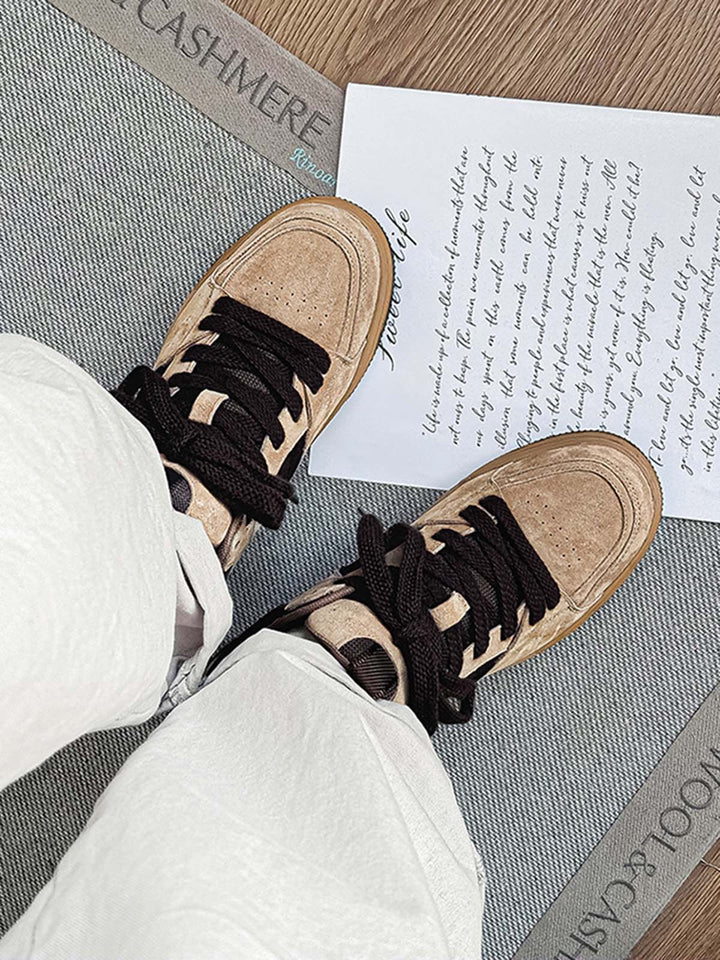 &CASHMERE
Rinoa
life
"Life is made up of a collection of moments that are
not ours to keep. The pain we encounter throughout
our days spent on this earth comes from the
illusion that some moments can be held onto.
Clinging to people and experiences that were never
in the first place is what causes us to miss out
beauty of the miracle that is the now. All
is yours, yet none of it is. How could it be?
around you. Everything is fleeting.
love and let go, love and let go, love and let
the single most important thing
in this
WOOL&CASH